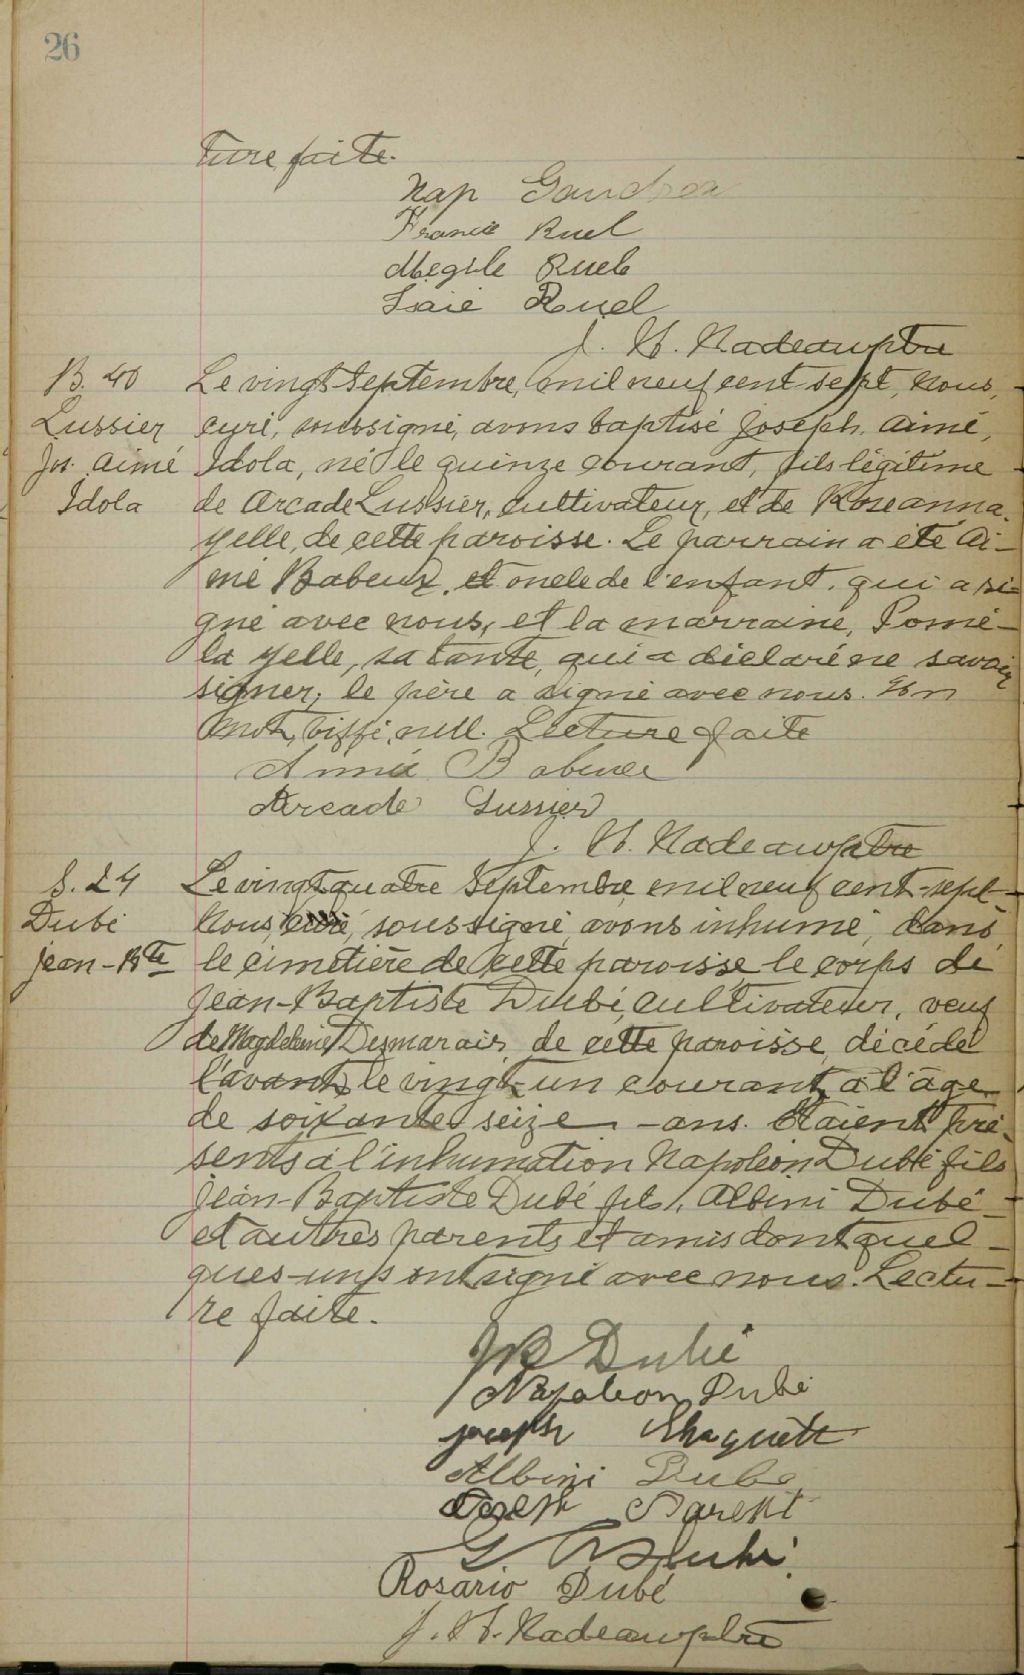 26
ture faite.
Nap Gaudreau
Francis Ruel
Megile Ruel
Isaïe Ruel
J. H. Nadeau ptre
B. 40
Lussier
Jos. Aimé
Idola
Le vingt Septembre, mil neuf cent sept, Nous,
curé, soussigné, avons baptisé Joseph, Aimé,
Idola, né le quinze courant, fils légitime
de Arcade Lussier, cultivateur, et de Roseanna
Yelle, de cette paroisse. Le parrain a été Ai-
mé Babeux, et oncle de l'enfant, qui a si-
gné avec nous, et la marraine, Pomé-
la Yelle, sa tante, qui a déclaré ne savoir
signer; le père a signé avec nous. Un
mot biffé, null. Lecture faite
Aimé Babeux
Arcade Lussier
J. H. Nadeau ptre
S. 24
Dubé
Jean-Bte
Le vingt quatre Septembre, mil neuf cent-sept-
Nous, curé, soussigné, avons inhumé, dans
le cimetière de cette paroisse, le corps de
Jean-Baptiste Dubé, cultivateur, veuf
de Magdeleine Desmarais, de cette paroisse, décédé
l'avant le vingt-un courant, à l'âge
de soixante seize - ans. Etaient pré-
sents à l'inhumation Napoléon Dubé fils
Jean-Baptiste Dubé fils, Albini Dubé
et autres parents et amis dont quel-
ques-uns ont signé avec nous. Lectu-
re faite.
JB Dubé
Napoleon Dubé
Joseph
Albini Dube
Joseph Parent
G Dubé
Rosario Dubé
J. H. Nadeau ptre